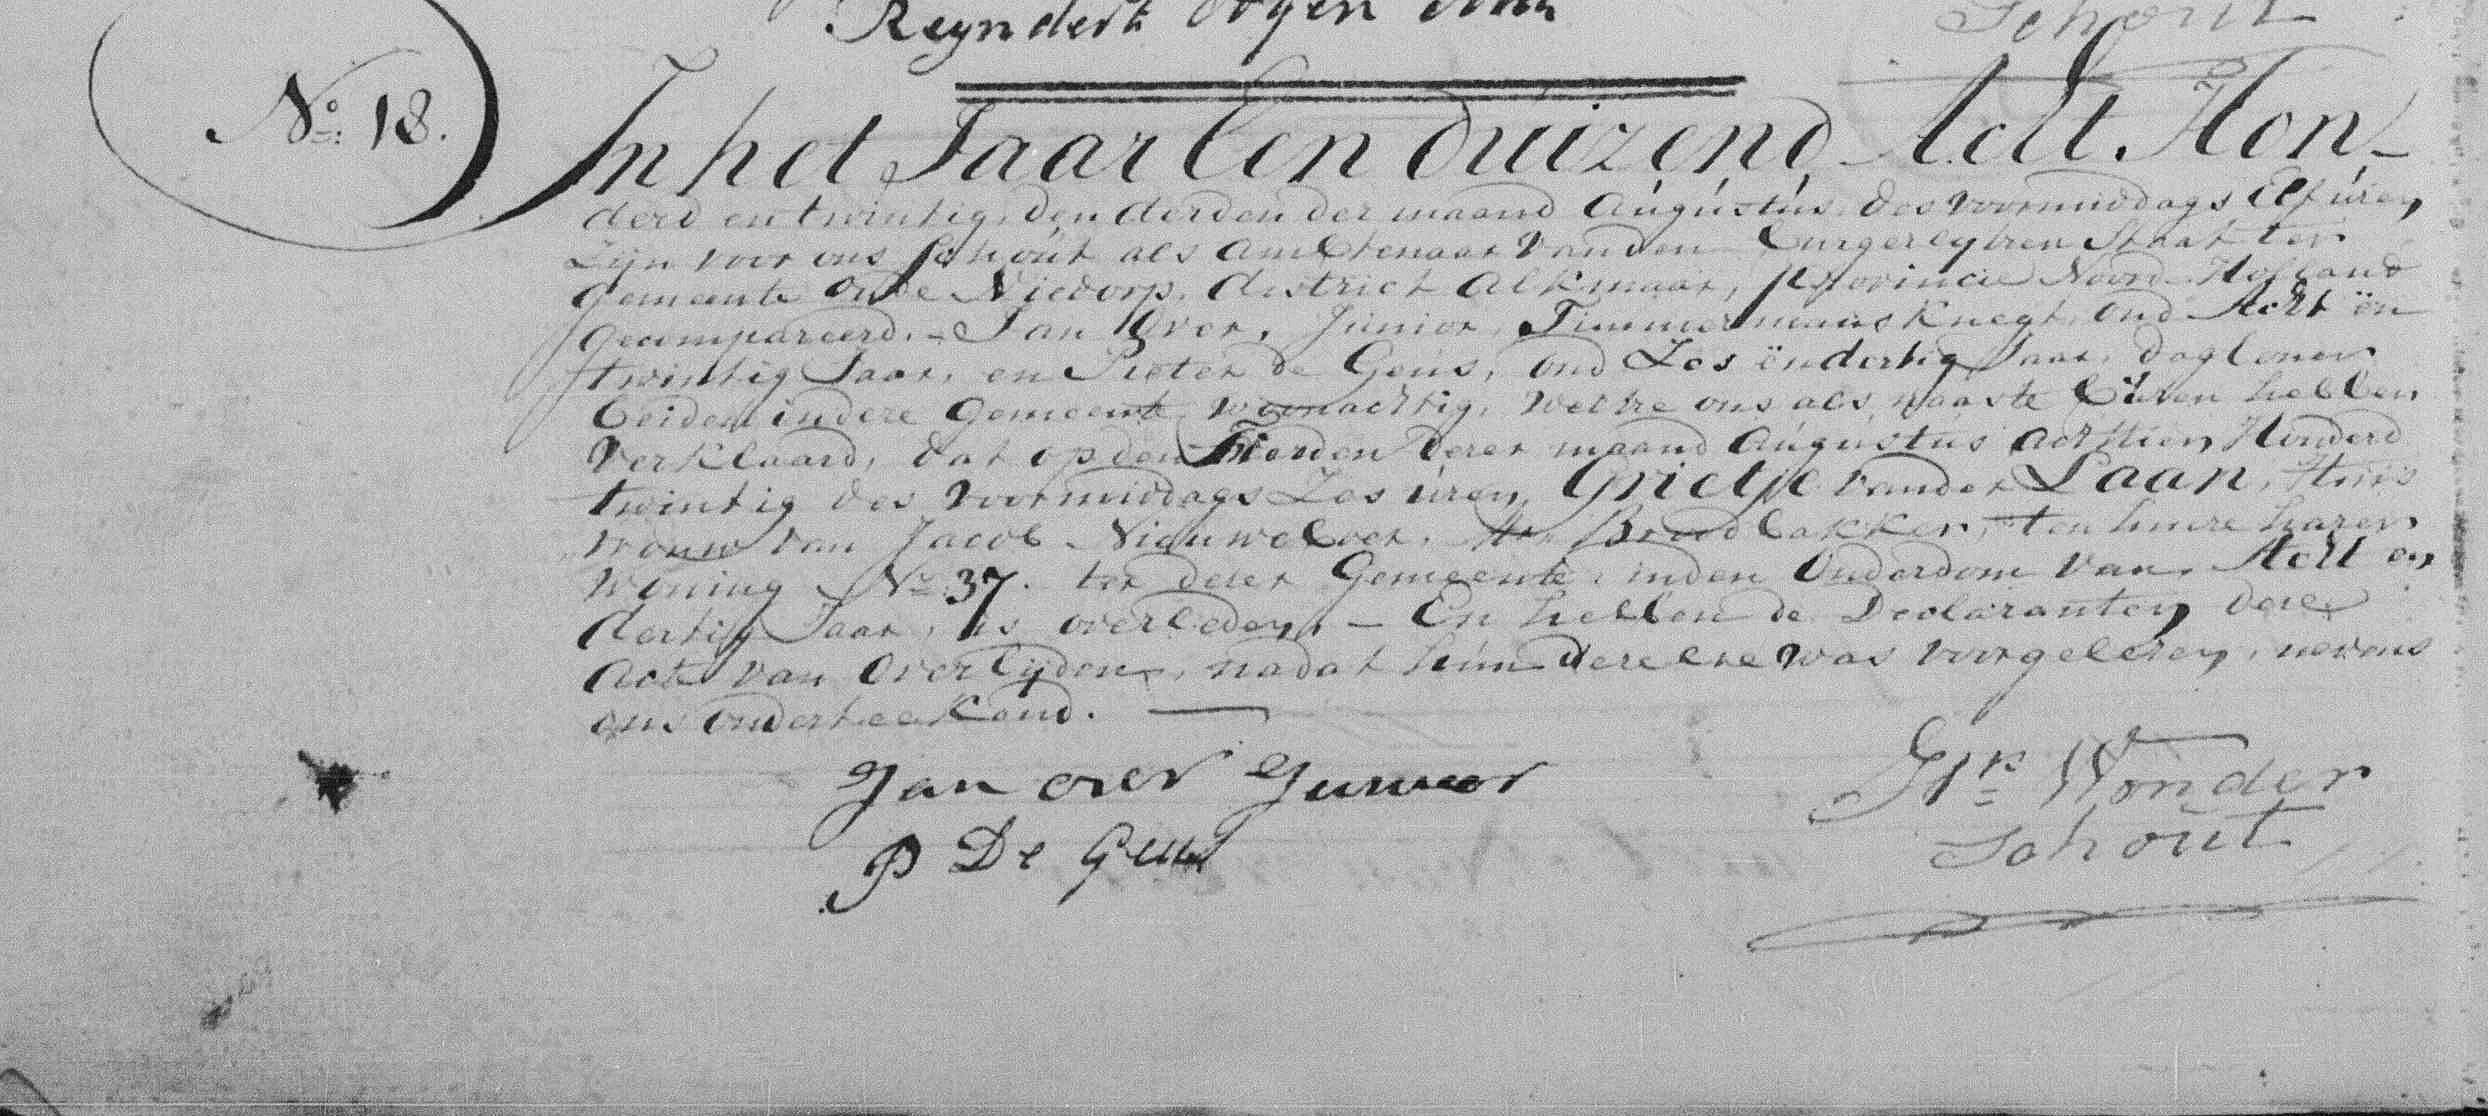 Reyndert
Schout
No. 18.
In het Jaar Een duizend Acht Hon-
derd en twintig, den derden der maand Augústús des voormiddags Elf úren,
Zijn voor ons Schoút als Ambtenaar van den burgerlyken Staat ter
gemeente Oude Niedorp, district Alkmaar, provincie Noord-Holland
gecompareerd. - Jan Over, Júnior, Timmermans Knegt, oud Acht ën
twintig Jaar, en Pieter de Geús, oud Zes ëndertig Jaar, dagloner
beiden indeze gemeente woonachtig, welke ons als naaste búren hebben
verklaard, dat op den derer maand Aúgústús achttien Honderd
twintig des voormiddags Zes úren, Grietje vander Laan, Húis
vrouw van Jacob Nieuweboer, Broodbakker, ten huize harer
woning No. 37. ter dezer Gemeente, inden Ouderdom van, Acht en
dertig Jaar, is overleden, - En hebben de Declaranten deze
Acte van Overlijden, nadat hún dezelve was voorgelezen, nevens
ons onderteekend. —
Jan over Junior
P De Geus
Wonder
Schout